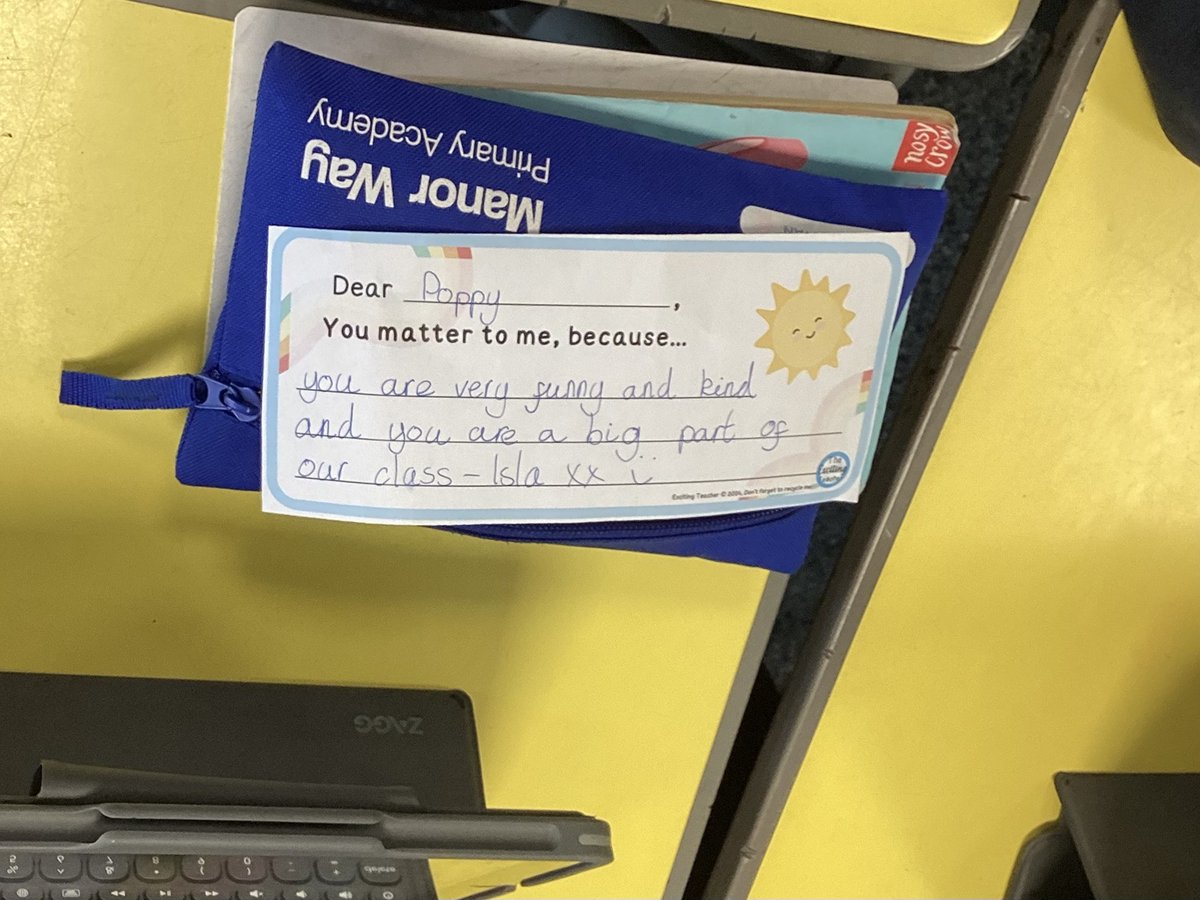 Manor Way
Primary Academy
nosy
crow
Dear Poppy,
You matter to me, because...
you are very funny and kind
and you are a big part of
our class - Isla xx
Exciting Teacher © 2024. Don't forget to recycle me
ZAGG